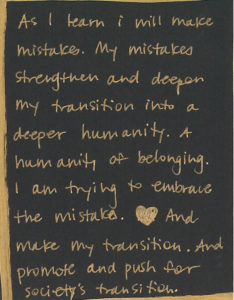 As I learn i will make
mistakes. My mistakes
strengthen and deepen
my transition into a
deeper humanity. A
humanity of belonging.
I am trying to embrace
the mistake. And
make my transition. And
promote and push for
society's transition.